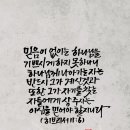 믿음이 없이는 하나님을
기쁘시게 하지 못하나니
하나님께 나아가는 자는
반드시 그가 계신 것과
또한 그가 자기를 찾는
자들에게 상 주시는
이심을 믿어야 할지니라
(히브리서 11:6)